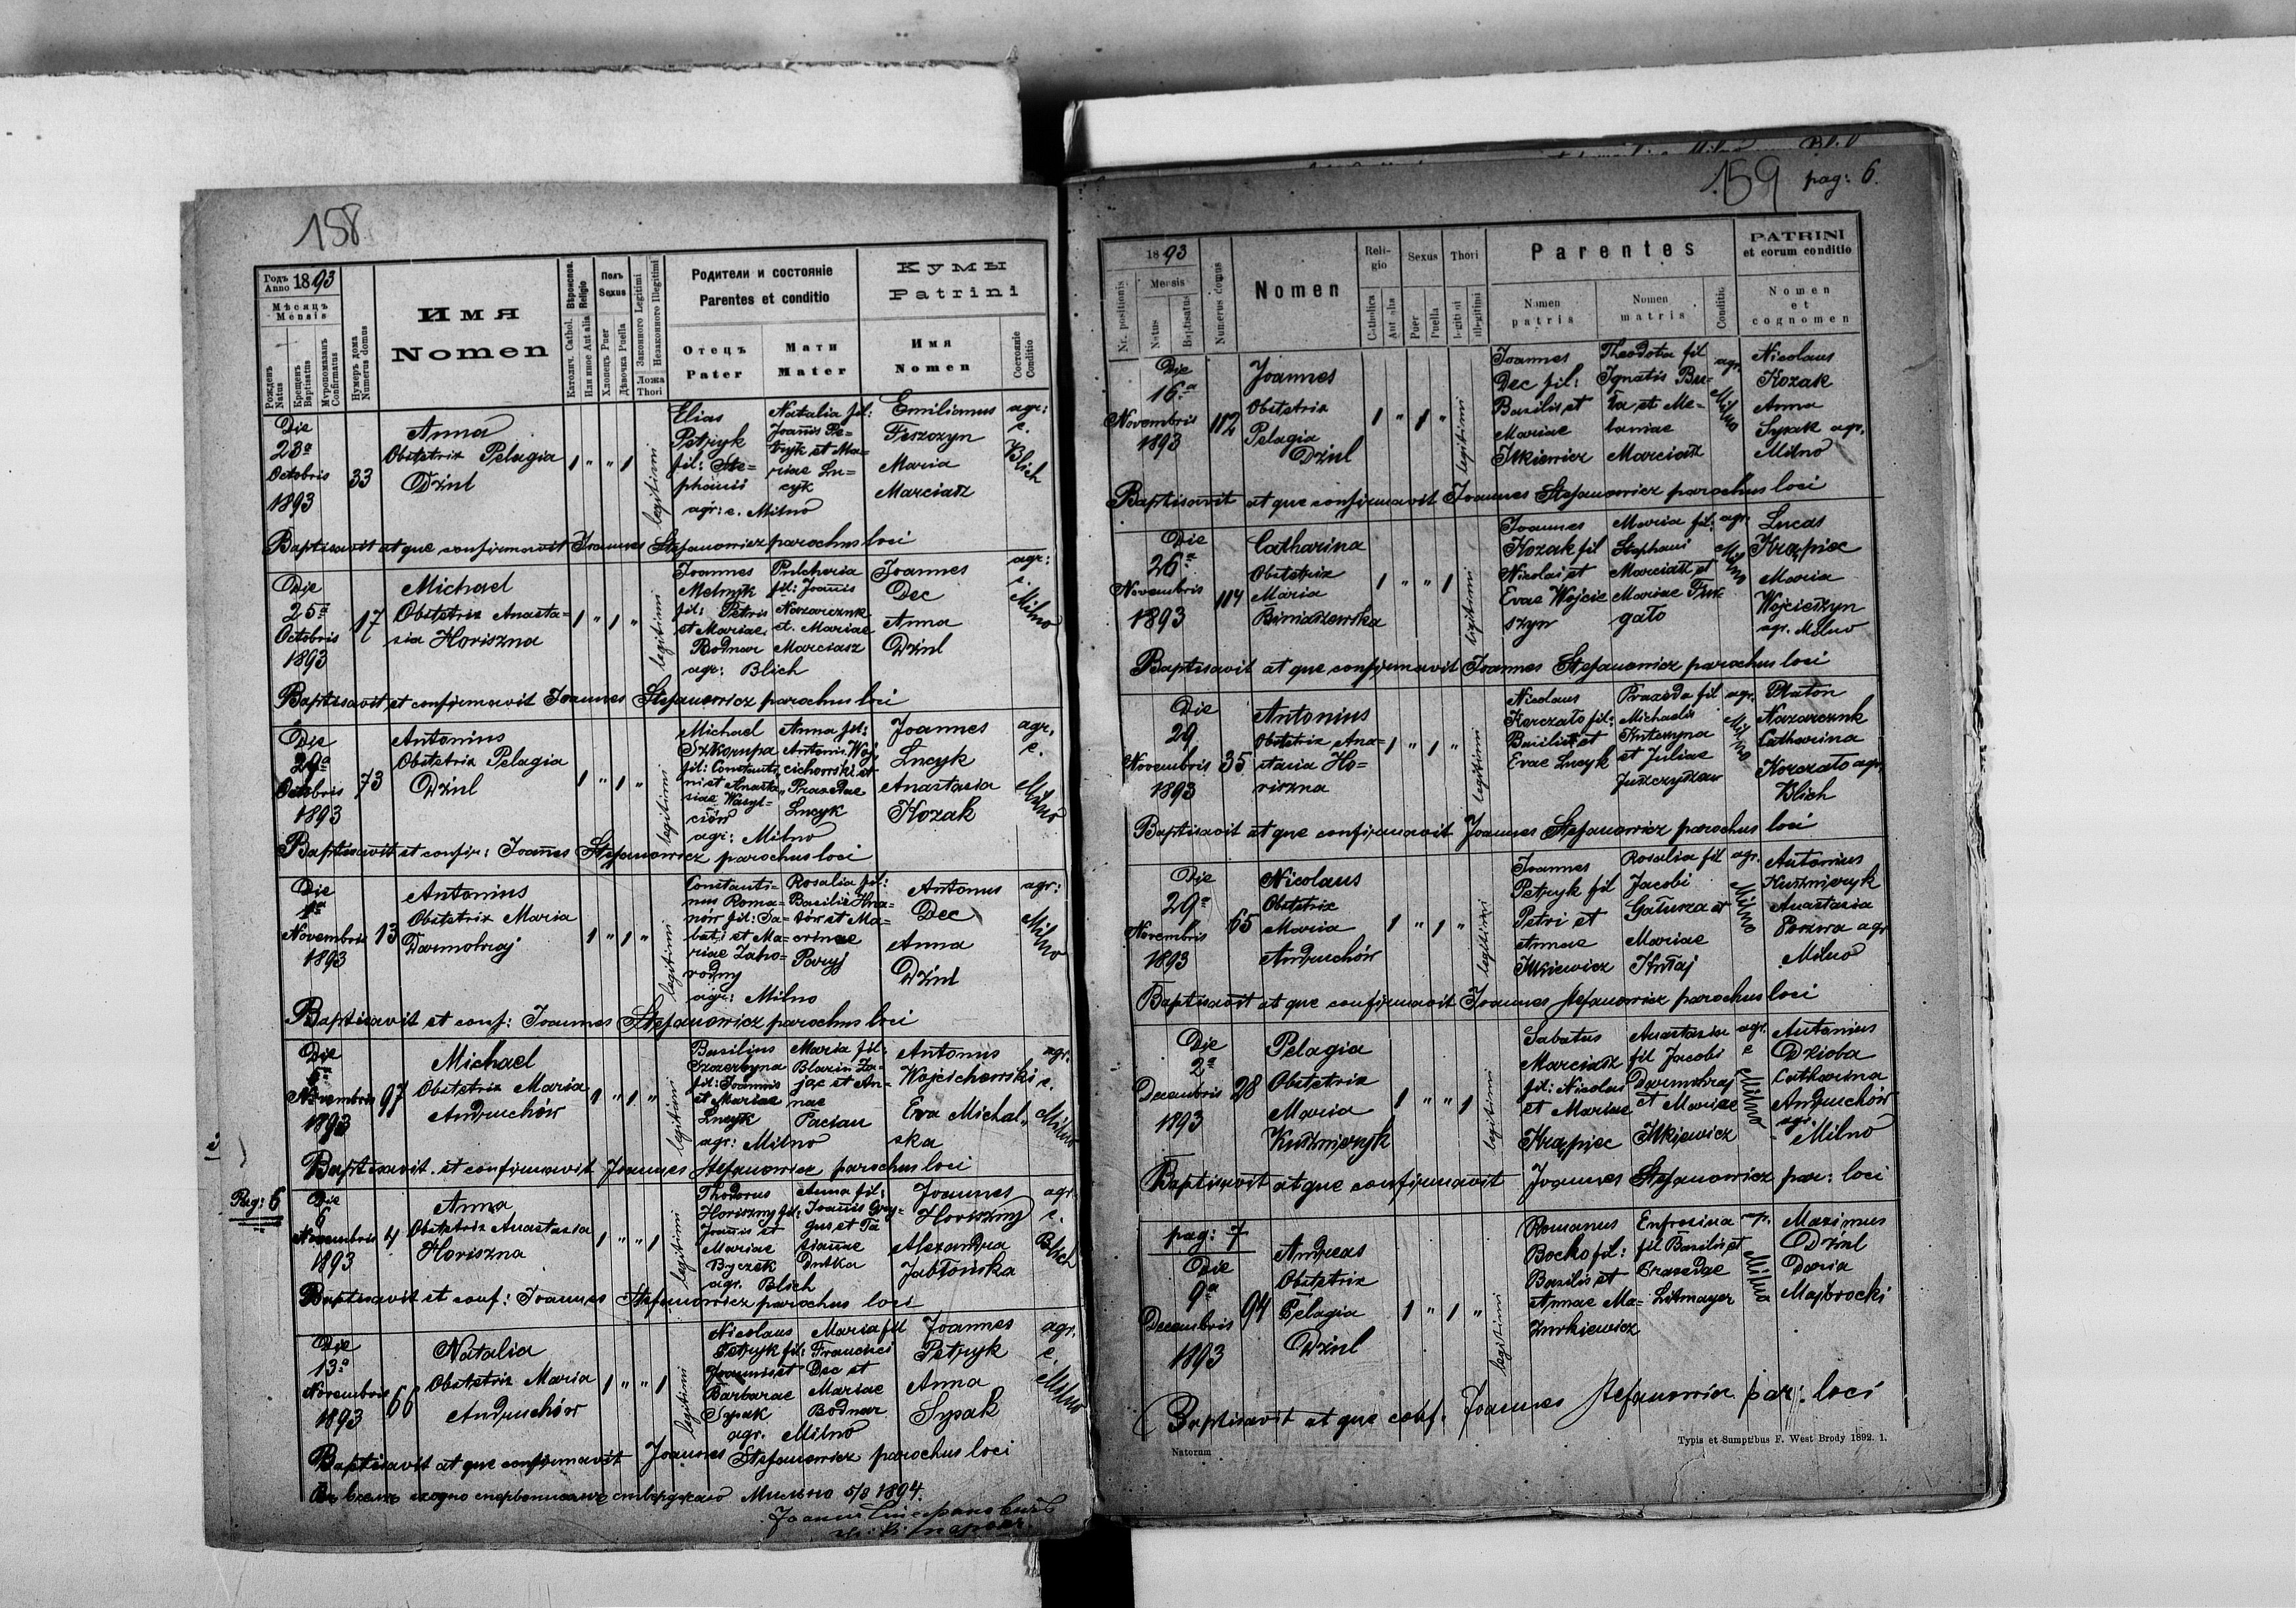 158
Годъ Anno 1893
Мѣсяцъ Mensis
Рожденъ Natus
Крещенъ Baptisatus
Мѵропомазанъ Confirmatus
Нумеръ дома Numerus domus
Имя
Nomen
Вѣроисповѣд. Religio
Католич. Cathol.
Или иное Aut alia
Полъ Sexus
Хлопецъ Puer
Дѣвочка Puella
Законного Legitimi
Незаконного Illegitimi
Ложа Thori
Родители и состояніе
Parentes et conditio
Отецъ Pater
Мати Mater
Кумы
Patrini
Имя Nomen
Состояніе Conditio
Die 23a Octobris 1893
33
Anna
Obstetrix Pelagia
Dziul
1 " " 1
legitimi
Elias Petryk fil: Stephanii
Natalia fil: Joannis Petryk et Mariae Lucyk
agr: c. Milno
Emilianus
Feszczyn
Maria
Marciasz
agr: c. Blich
Baptisavit atque confirmavit Joannes Stefanowicz parochus loci
Die 25a Octobris 1893
17
Michael
Obstetrix Anastasia Horiszna
1 " 1 "
legitimi
Joannes Melnyk fil: Petris et Mariae Bodnar
Pulcheria fil: Joannis Nazarczuk et Mariae Marciasz
agr: Blich
Joannes
Dec
Anna
Dziul
agr: c. Milno
Baptisavit et confirmavit Joannes Stefanowicz parochus loci
Die 29a Octobris 1893
73
Antonius
Obstetrix Pelagia
Dziul
1 " 1 "
legitimi
Michael Szkorupa fil: Constantini et Anastasiae Wasylciów
Anna fil: Antonis Wojcichowski et Praxedae Lucyk
agr: Milno
Joannes
Lucyk
Anastasia
Kozak
agr. c. Milno
Baptisavit et confir: Joannes Stefanowicz parochus loci
Die 1a Novembris 1893
13
Antonius
Obstetrix Maria
Darmohraj
1 " 1 "
legitimi
Constantinus Romanów fil: Sabati et Mariae Zahorodny
Rosalia fil: Basilii Hnatów et Macrinae Paryj
agr: Milno
Antonus
Dec
Anna
Dziul
agr: Milno
Baptisavit et conf: Joannes Stefanowicz parochus loci
Die 5a Novembris 1893
97
Michael
Obstetrix Maria
Andruchów
1 " 1 "
legitimi
Basilius Szczerbyna fil: Joannis et Mariae Lucyk
Maria fil: Blazii Zajac et Annae Pacian
agr: Milno
Antonus
Wojcichowski
Eva Michalska
agr. c. Milno
Baptisavit et confirmavit Joannes Stefanowicz parochus loci
Pag: 6
Die 6 Novembris 1893
4
Anna
Obstetrix Anastasia
Horiszna
1 " " 1
legitimi
Thodorus Horiszny fil: Joannis et Mariae Byczek
Anna fil: Joannis Grygus et Tatiannae Dutka
agr. Blich
Joannes
Horiszny
Alexandra
Jabłońska
agr. c. Blich
Baptisavit et conf: Joannes Stefanowicz parochus loci
Die 13a Novembris 1893
66
Natalia
Obstetrix Maria
Andruchów
1 " " 1
legitimi
Nicolaus Petryk fil: Joannis et Barbarae Sypak
Maria fil Francisci Dec et Mariae Bodnar
agr. Milno
Joannes
Petryk
Anna
Sypak
agr. c. Milno
Baptisavit atque confirmavit Joannes Stefanowicz parochus loci
Мильно 1894
159
pag: 6.
1893
Nr. positionis
Mensis
Natus
Baptisatus
Numerus domus
Nomen
Religio
Catholica
Aut alia
Sexus
Puer
Puella
Thori
legitimi
illegitimi
Parentes
Nomen patris
Nomen matris
Conditio
PATRINI
et eorum conditio
Nomen et cognomen
Die 16a Novembris 1893
112
Joannes
Obstetrix
Pelagia
Dziul
1 " 1 "
legitimi
Joannes Dec fil: Basilis et Mariae Ilkiewicz
Theodota fil Ignatis Buta et Melaniae Marciasz
agr. Milno
Nicolaus
Kozak
Anna
Sypak agr.
Milno
Baptisavit atque confirmavit Joannes Stefanowicz parochus loci
Die 26a Novembris 1893
114
Catharina
Obstetrix
Maria
Biniaszewska
1 " " 1
legitimi
Joannes Kozak fil Nicolai et Evae Wojcieszyn
Maria fil: Stephani Marciasz et Mariae Fur gało
agr. Milno
Lucas
Krąpiec
Maria
Wojcieszyn
agr. Milno
Baptisavit atque confirmavit Joannes Stefanowicz parochus loci
Die 29 Novembris 1893
35
Antonius
Obstetrix Anastasia Horiszna
1 " 1 "
legitimi
Nicolaus Korczało fil: Basilis et Evae Lucyk
Praxeda fil Michaelis Kuternyna et Juliae Juszczyszan
agr. Milno
Platon
Nazarczuk
Catharina
Korczało agr.
Blich
Baptisavit atque confirmavit Joannes Stefanowicz parochus loci
Die 29a Novembris 1893
65
Nicolaus
Obstetrix
Maria
Andruchów
1 " 1 "
legitimi
Joannes Petryk fil Petri et Annae Ilkiewicz
Rosalia fil Jacobi Gałusza et Mariae Hułaj
agr. Milno
Antonius
Kuśnieryk
Anastasia
Pozwa agr
Milno
Baptisavit atque confirmavit Joannes Stefanowicz parochus loci
Die 2a Decembris 1893
28
Pelagia
Obstetrix
Maria
Kuśnierzyk
1 " " 1
legitimi
Sabatus Marciasz fil: Nicolai et Mariae Krąpiec
Anastasia fil Jacobi Darmohraj et Mariae Ilkjewicz
agr. c Milno
Antonius
Dzioba
Catharina
Andruchów
agr.
Milno
Baptisavit atque confirmavit Joannes Stefanowicz par: loci
pag: 7
Die 9a Decembris 1893
94
Andreas
Obstetrix
Pelagia
Dziul
1 " 1 "
legitimi
Romanus Bocho fil: Basilis et Annae Mazurkiewicz
Enfrosina fil Basilis et Praxedae Litmayer
agr. Milno
Maximus
Dziul
Daria
Majbrocki
Baptisavit atque conf. Joannes Stefanowicz par: loci
Natorum
Typis et Sumptibus F. West Brody 1892. 1.